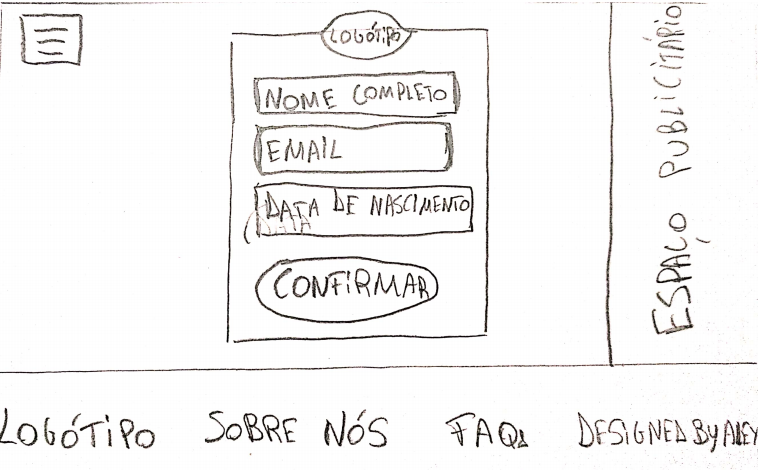 LOGÓTIPO
NOME COMPLETO
EMAIL
DATA DE NASCIMENTO
CONFIRMAR
ESPAÇO PUBLICITÁRIO
LOGÓTIPO SOBRE NÓS FAQs DESIGNED BY